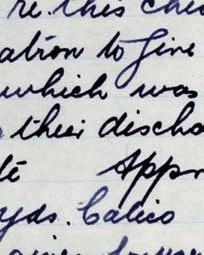 re. this
ation to give
which was
their discha
te Appr
yds. Calico